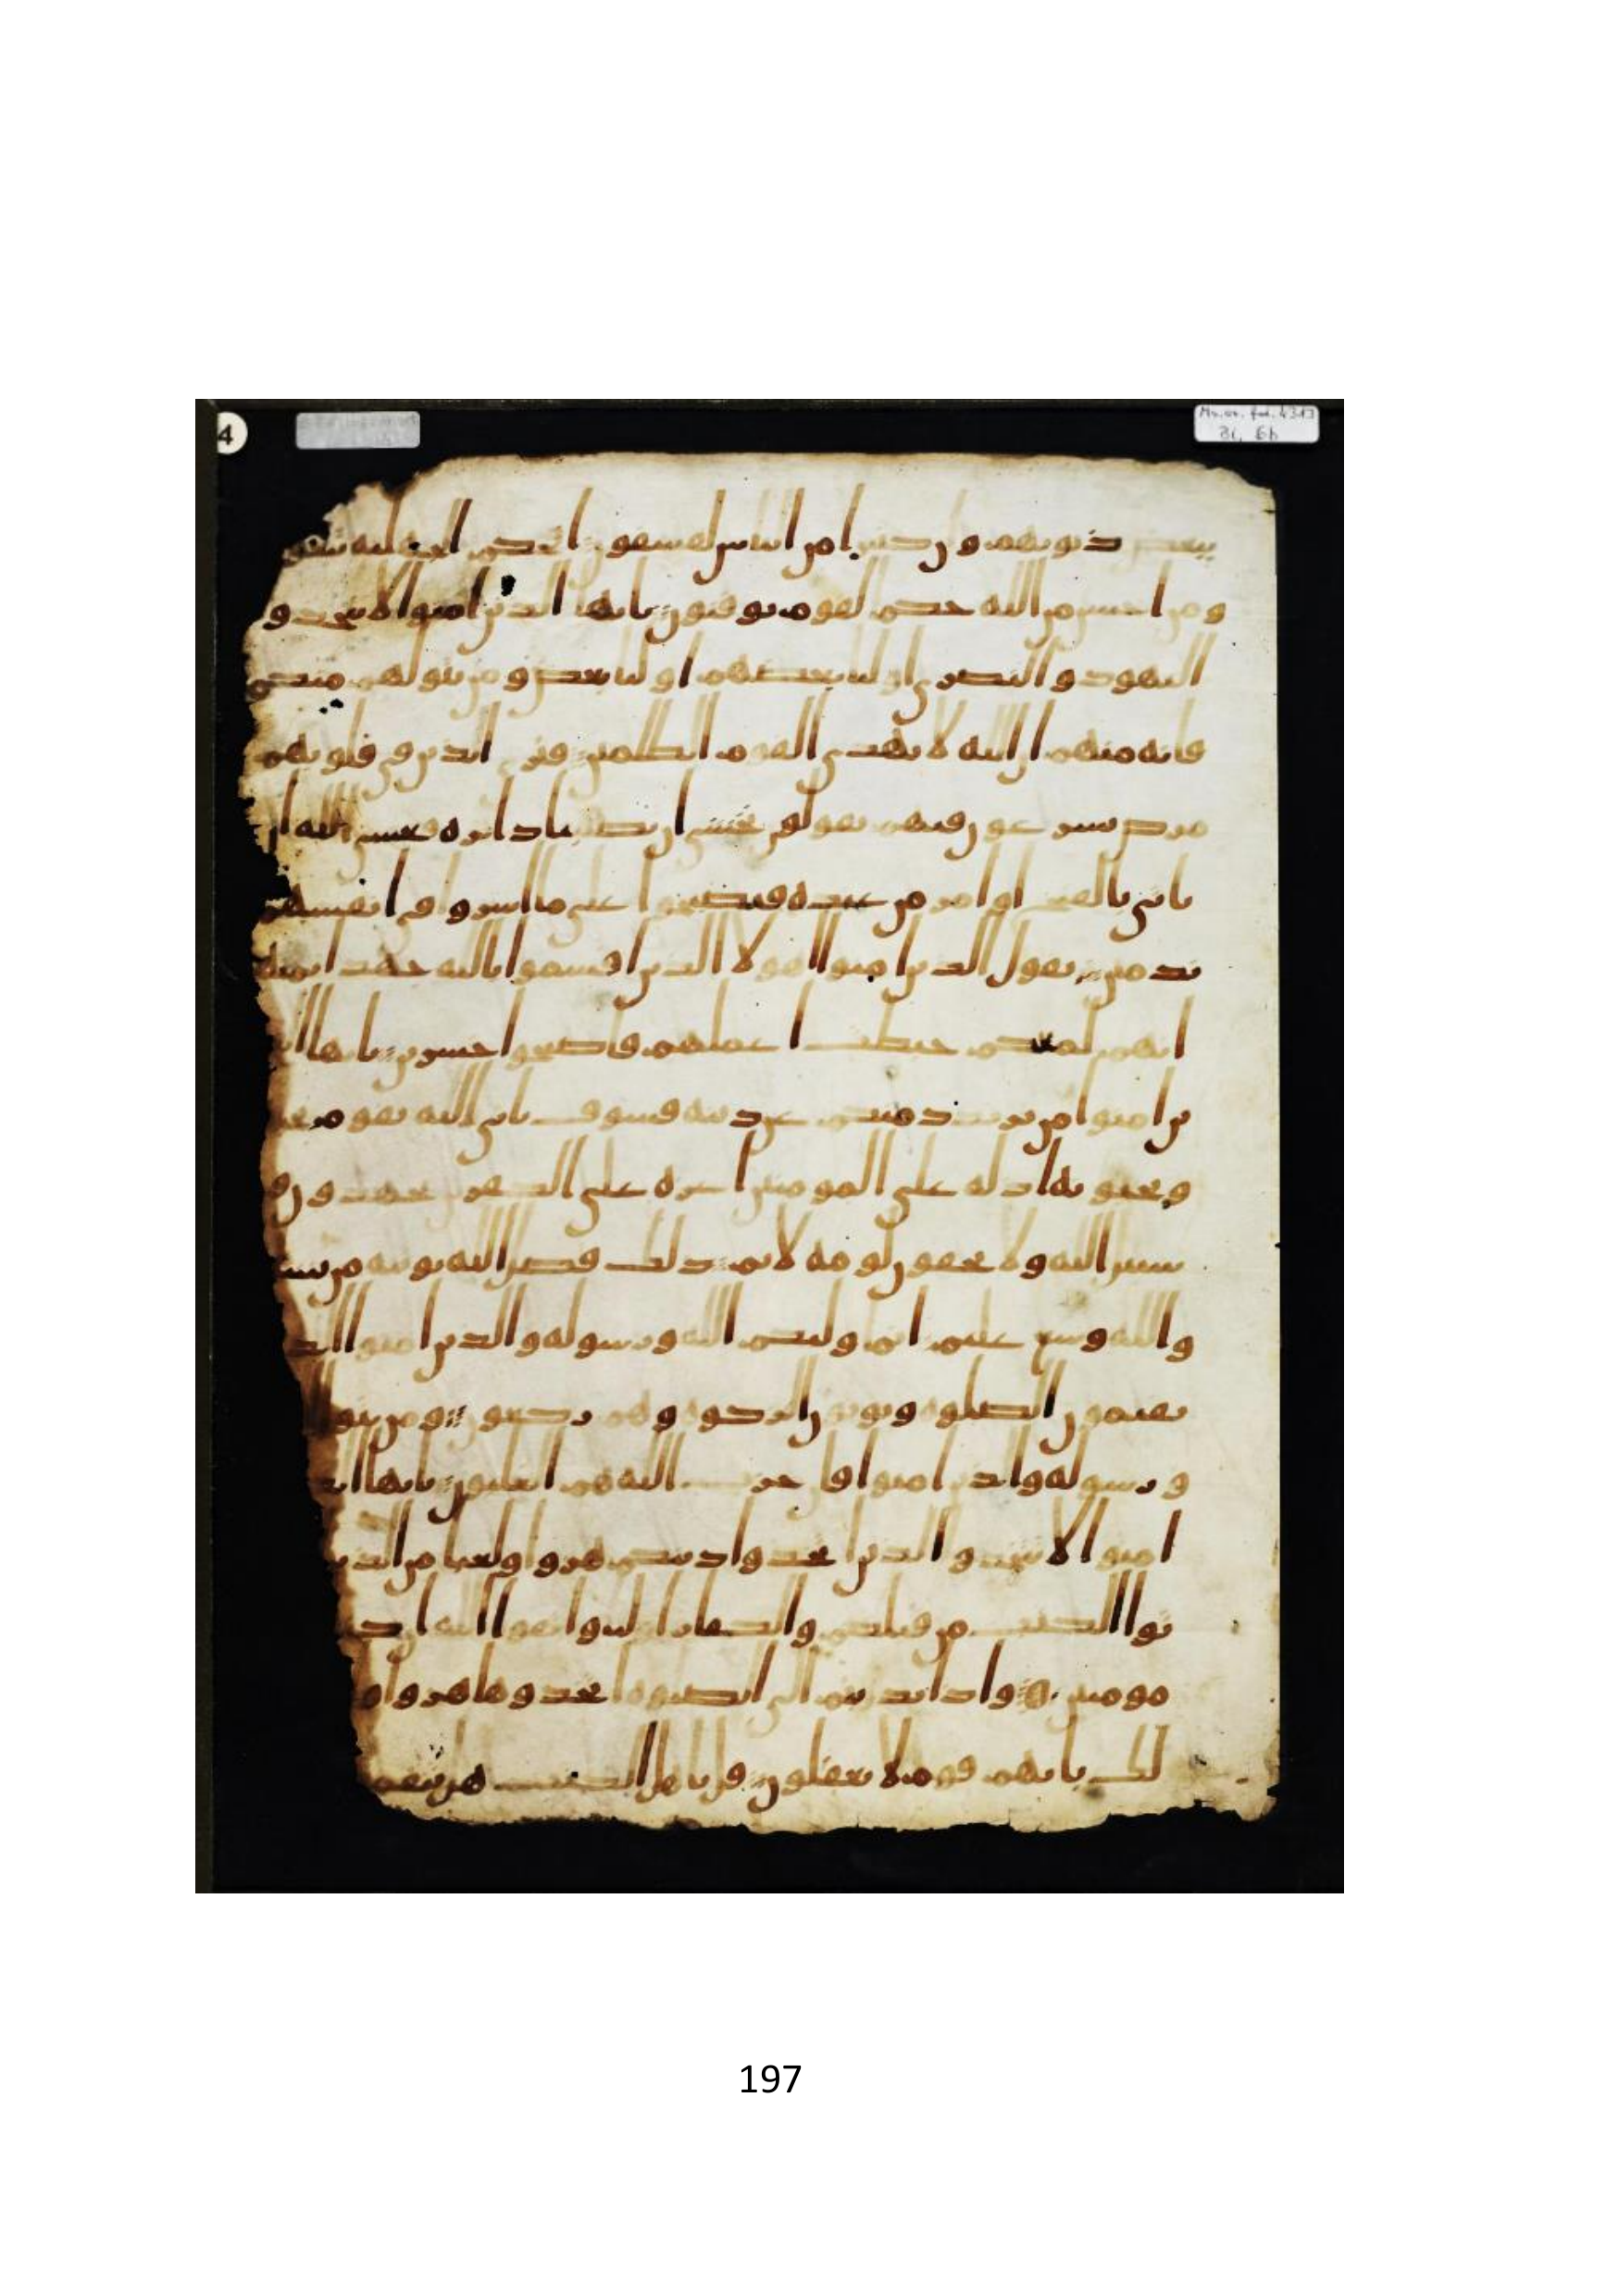 4
Ms. or. fol. 4313
Bl. 6b
ببعض ذنوبهم وان كثيرا من الناس لفسقون افحكم الجهليه يبغون
ومن احسن من الله حكما لقوم يوقنون يايها الذين امنوا لا تتخذو
اليهود والنصرى اوليا بعضهم اوليا بعض ومن يتولهم منكم
فانه منهم ان الله لا يهدي القوم الظلمين فترى الذين في قلوبهم
مرض يسرعون فيهم يقولون نخشى ان تصيبنا دايره فعسى الله ان
ياتي بالفتح او امر من عنده فيصبحوا على ما اسروا في انفسهم
ندمين يقول الذين امنوا اهولا الذين اقسموا بالله جهد ايمنه
انهم لمعكم حبطت اعملهم فاصبحوا خسرين يايها الذ
ين امنوا من يرتدد منكم عن دينه فسوف ياتي الله بقوم يحبـ
ويحبونه اذله على المومنين اعزه على الكفرين يجهدون في
سبيل الله ولا يخفون لومه لايم ذلك فضل الله يوتيه من يشا
والله وسع عليم انما وليكم الله ورسوله والذين امنوا الذ
يقيمون الصلوه ويوتون الزكوه وهم ركعون ومن يتول
ورسوله والذين امنوا فان حزب الله هم الغلبون يايها الذ
امنوا لا تتخذوا الذين اتخذوا دينكم هزوا ولعبا من الذين
توا الكتب من قبلكم والكفار اوليا واتقوا الله ان كـ
مومنين واذا نديتم الى الصلوه اتخذوها هزوا و
لك بانهم قوم لا يعقلون قل ياهل الكتب هل تنقمو
197